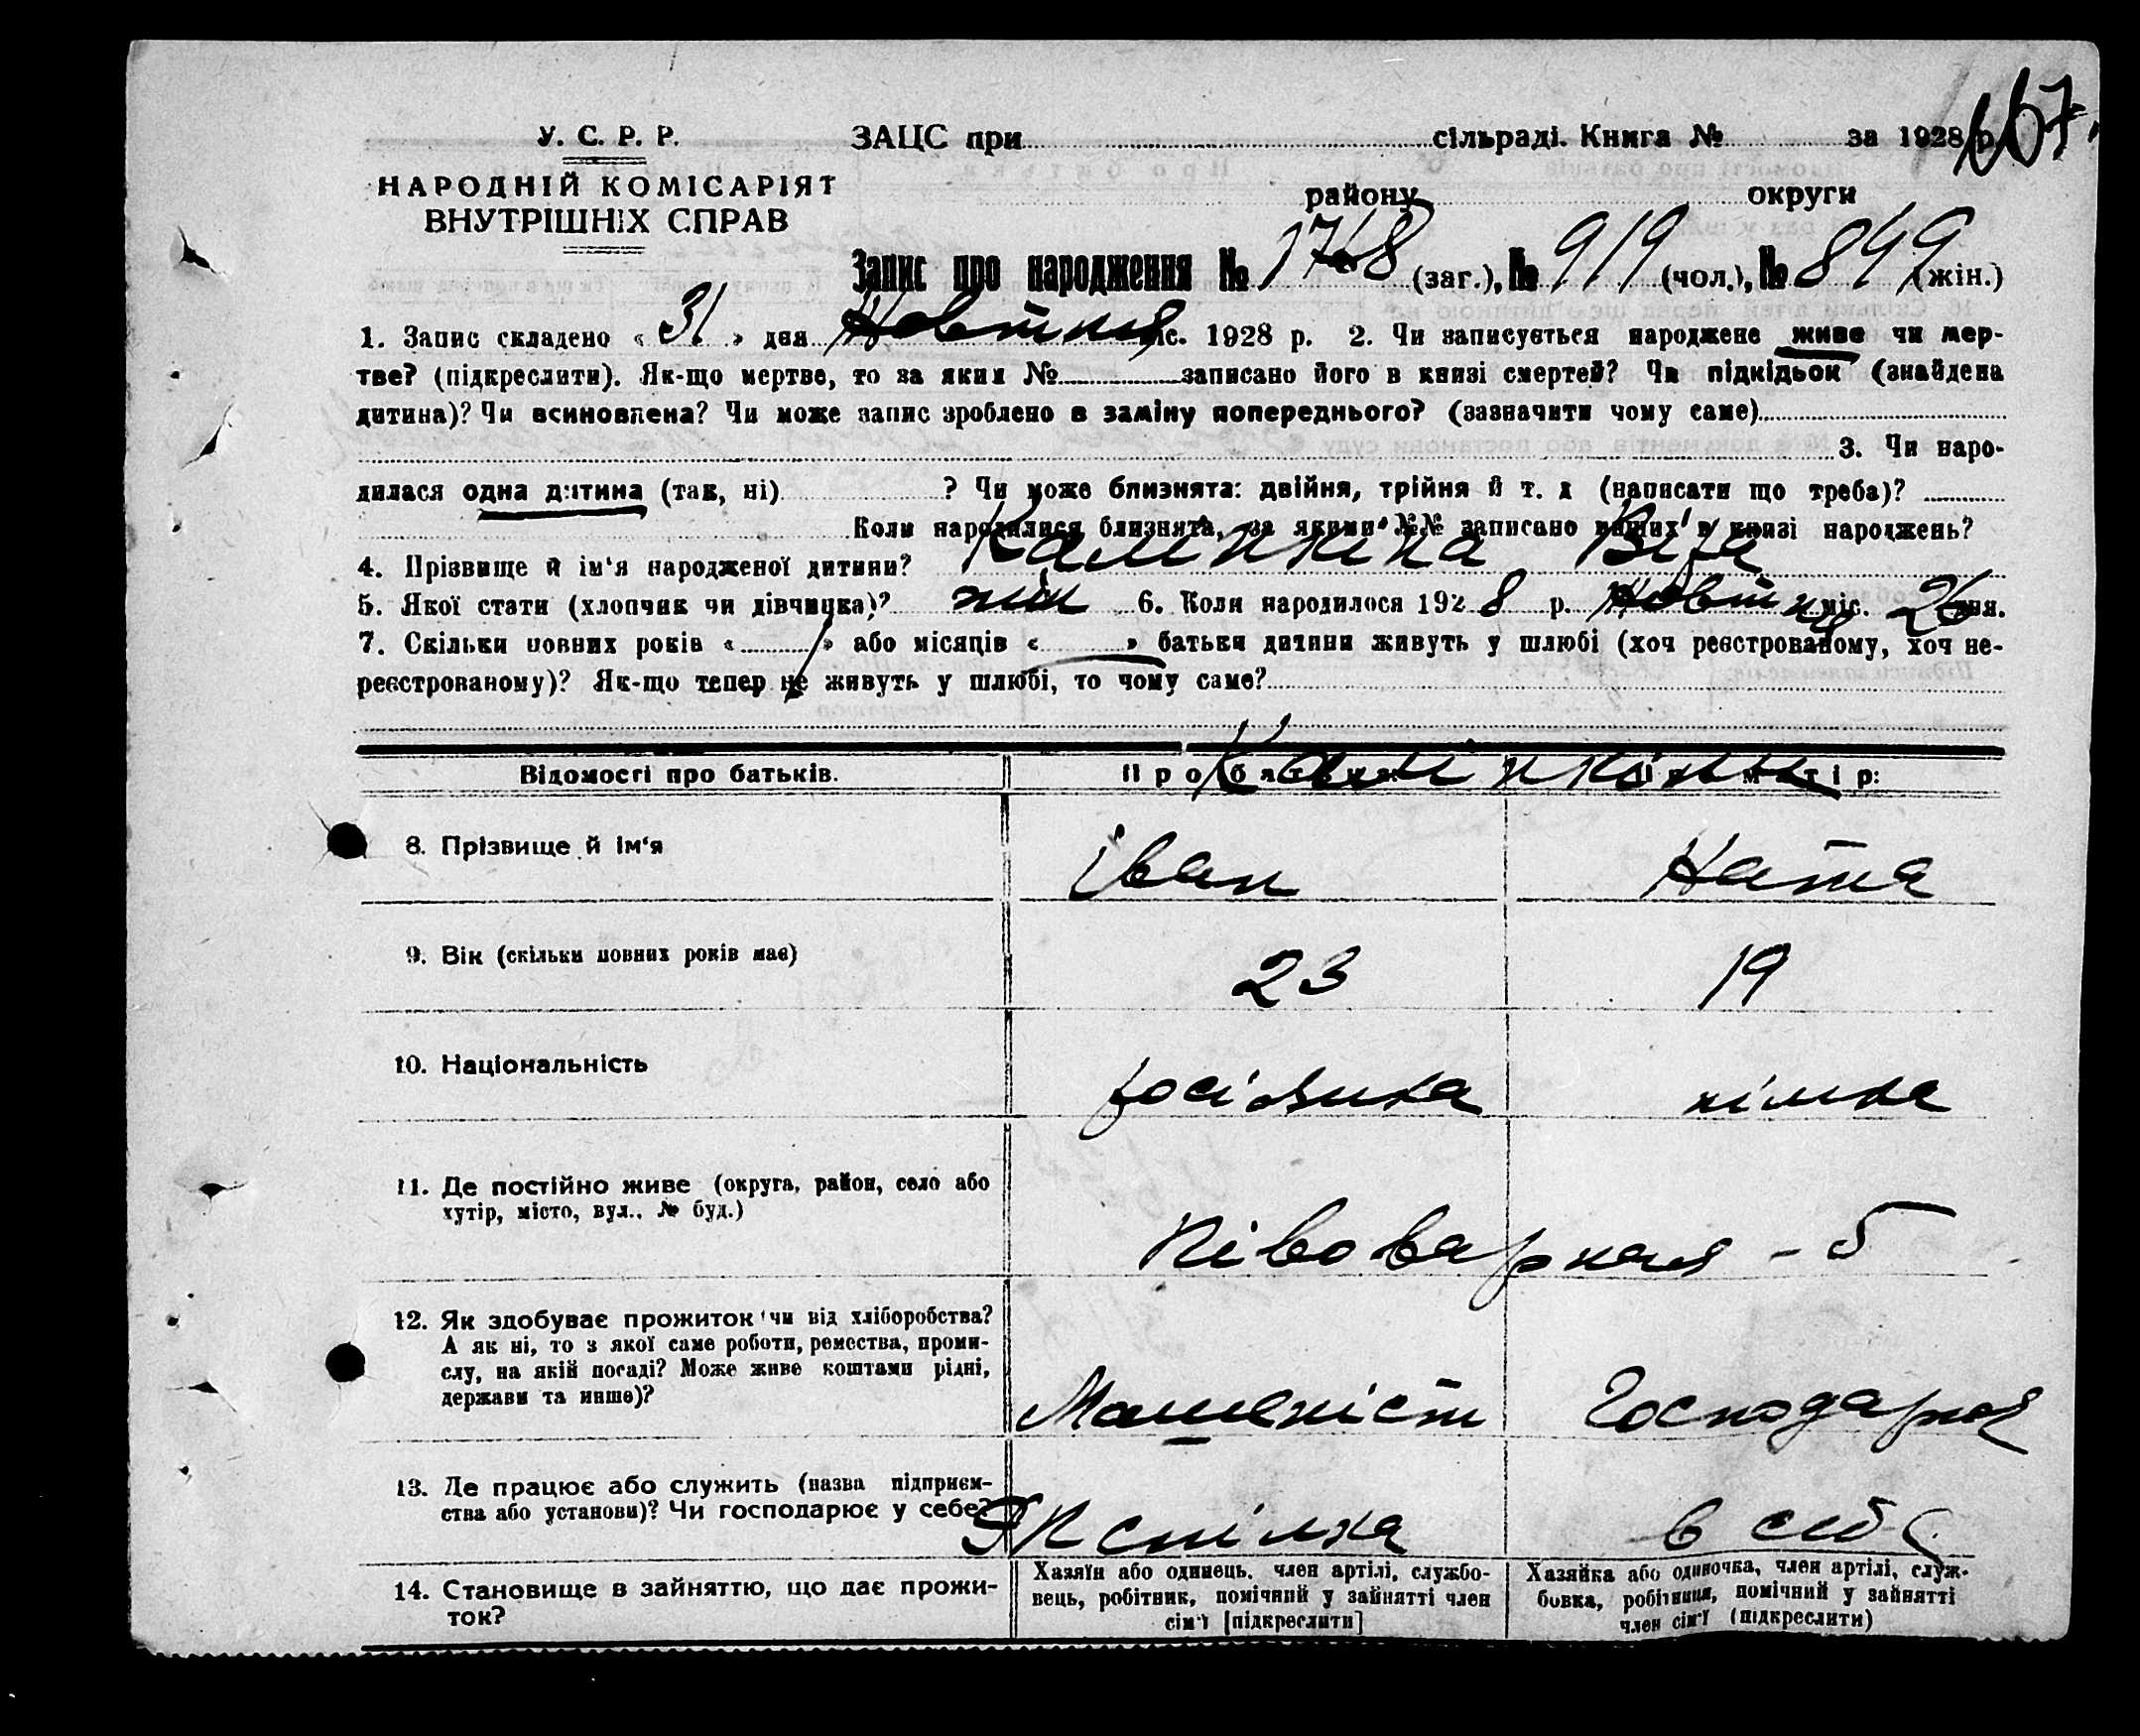 167.
У. С. Р. Р.
ЗАЦС при сільраді. Книга № за 1928 р.
НАРОДНІЙ КОМІСАРІЯТ
ВНУТРІШНІХ СПРАВ
району округи
Запис про народження № 1768 (заг.), № 919 (чол.), № 849 (жін.)
1. Запис складено « 31 » дня Жовтня міс. 1928 р. 2. Чи записується народжене живе чи мер-
тве? (підкреслити). Як-що мертве, то за яким № записано його в книзі смертей? Чи підкідьок (знайдена
дитина)? Чи всиновлена? Чи може запис зроблено в заміну попереднього? (зазначити чому саме)
3. Чи наро-
дилася одна дитина (так, ні) ? Чи може близнята: двійня, трійня й т. д (написати що треба)?
Коли народилися близнята, за якими №№ записано инших в книзі народжень?
4. Прізвище й ім‘я народженої дитини? Калинкіна Віра
5. Якої статі (хлопчик чи дівчинка)? жін 6. Коли народилося 1928 р. Жовтня міс. 26 дня.
7. Скільки повних років « » або місяців « » батьки дитини живуть у шлюбі (хоч реєстрованому, хоч не-
реєстрованому)? Як-що тепер не живуть у шлюбі, то чому саме?
Відомості про батьків. Про батька: Про матір:
Калинкіни
8. Прізвище й ім‘я Іван Ната
9. Вік (скільки повних років має) 23 19
10. Національність росіянка німка
11. Де постійно живе (округа, район, село або
хутір, місто, вул., № буд.)
Півоварная - 5
12. Як здобуває прожиток чи від хліборобства?
А як ні, то з якої саме роботи, ремества, проми-
слу, на якій посаді? Може живе коштами рідні,
держави та инше)?
Машеніст Господарня
13. Де працює або служить (назва підприєм-
ства або установи)? Чи господарює у себе?
спілка в себе
14. Становище в зайняттю, що дає прожи-
ток?
Хазяїн або одинець, член артілі, службо-
вець, робітник, помічний у зайнятті член
сім‘ї [підкреслити]
Хазяйка або одиночка, член артілі, служ-
бовка, робітниця, помічний у зайнятті
член сім‘ї (підкреслити)